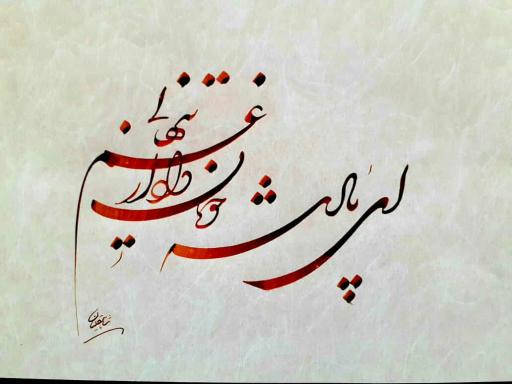 ای پادشه خوبان داد از غم تنهایی